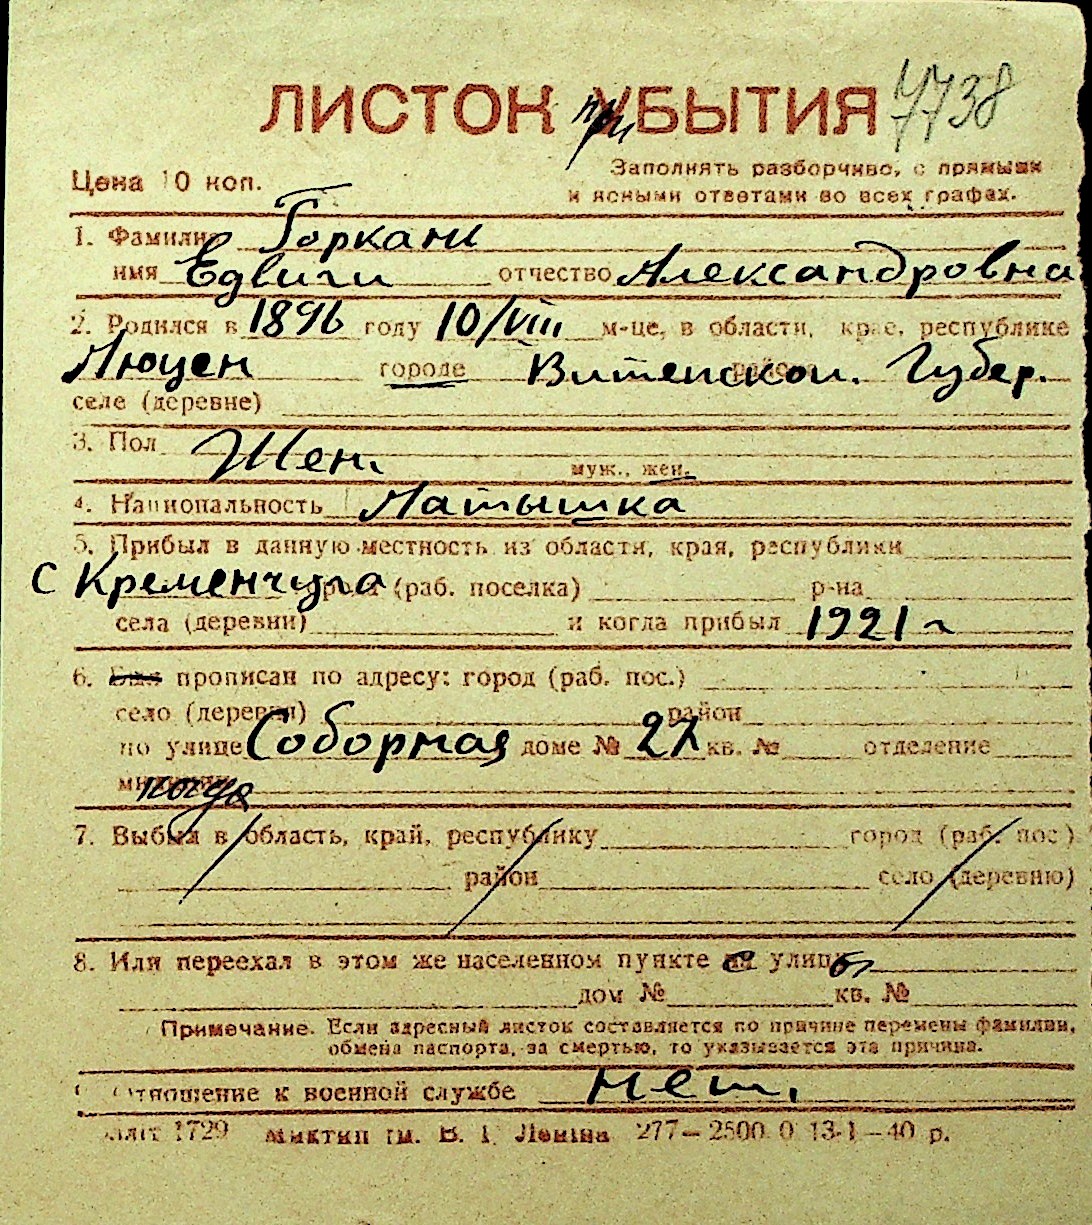 ЛИСТОК при БЫТИЯ 7738
Цена 10 коп.
Заполнять разборчиво, с прямыми
и ясными ответами во всех графах.
1. Фамилия Горкани
имя Едвиги отчество Александровна
2. Родился в 1896 году 10/VIII м-це, в области, крае, республике
Люцен городе Витепской. Губер.
селе (деревне)
3. Пол Жен. муж., жен.
4. Национальность Латышка
5. Прибыл в данную местность из области, края, республики
с Кременчуга (раб. поселка) р-на
села (деревни) и когда прибыл 1921 г
6. Был прописан по адресу: город (раб. пос.)
село (деревня) район
по улице Соборная доме № 27 кв. № отделение
7. Выбыл в область, край, республику город (раб. пос.)
район село (деревню)
8. Или переехал в этом же населенном пункте с улицы
дом № кв. №
Примечание. Если адресный листок составляется по причине перемены фамилии,
обмена паспорта, за смертью, то указывается эта причина.
Отношение к военной службе нет.
1729 им. В. І. Леніна 277—2500. 0 13-1—40 р.